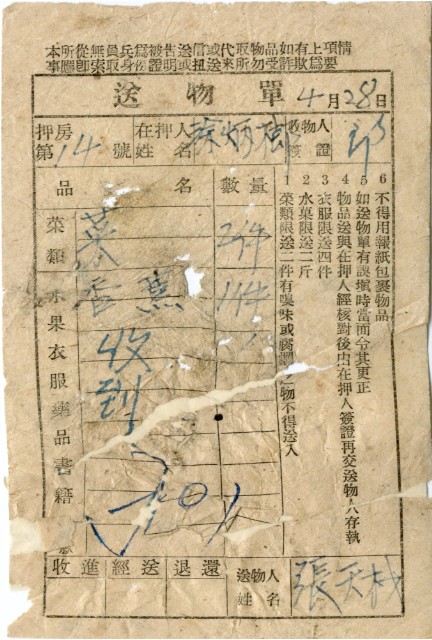 本所從無員兵為被告送信或代取物品如有上項情
事應即索取身份證明或扭送來所勿受詐欺為要
送物單 4月28日
押房第14號
在押人姓名
收物人簽證
品名 數量
菜類水果衣服藥品書籍
菜 2件
香蕉 1件
收到
1 菜類限送二件有嗅味或腐
物不得送入
2 水菓限送二斤
3 衣服限送四件
4 物品送與在押人經核對後由在押人簽證再交送物人存執
5 如送物單有誤塡時當面令其更正
6 不得用報紙包裹物品
收進經送退還
送物人姓名 張天